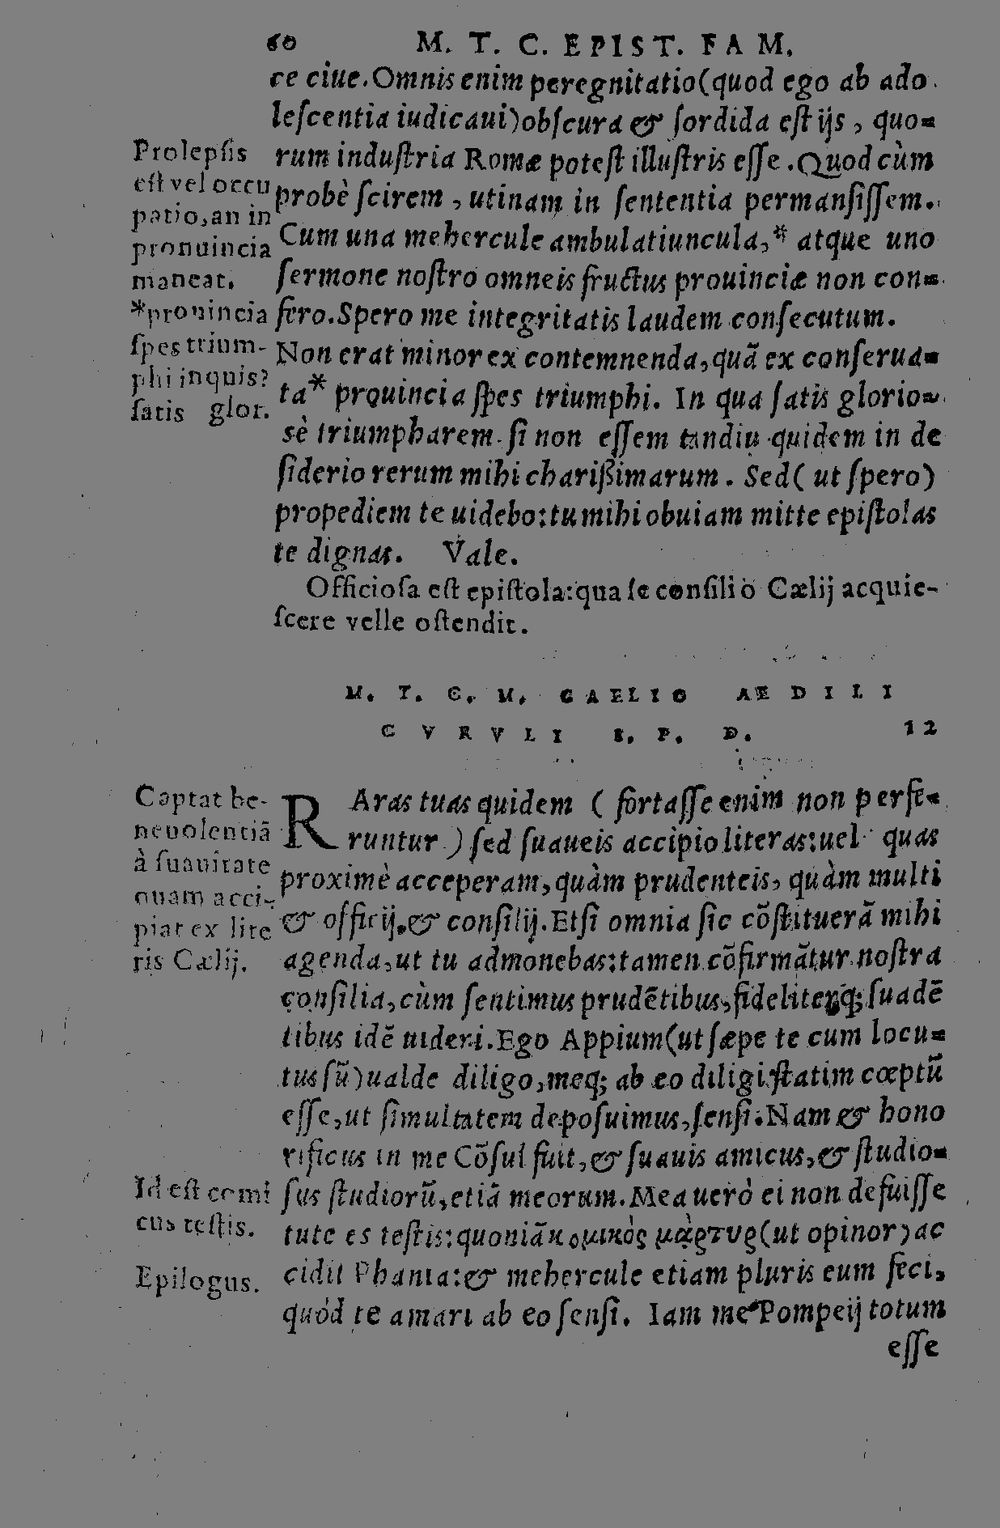 60 M. T. C. EPIST. FAM.
re ciue. Omnis enim peregnitatio (quod ego ab ado
lescentia iudicaui) obscura & sordida est ijs, quo=
rum industria Romæ potest illustris esse. Quod cùm
probè scirem, utinam in sententia permansissem.
Cum una mehercule ambulatiuncula,* atque uno
sermone nostro omneis fructus prouinciæ non con=
fero. Spero me integritatis laudem consecutum.
Non erat minor ex contemnenda, quã ex conserua=
ta* prouincia spes triumphi. In qua satis glorio=
sè triumpharem. si non essem tandiu quidem in de
siderio rerum mihi charißimarum. Sed (ut spero)
propediem te uidebo: tu mihi obuiam mitte epistolas
te dignas. Vale.
Prolepsis
est vel occu
patio, an in
pronuincia
maneat.
*prouincia
spes trium-
phi inquis?
satis glor.
Officiosa est epistola: qua se consilio Cælij acquie-
scere velle ostendit.
M. T. C. M. CAELIO AEDILI
CVRVLI S. P. D. 12
RAras tuas quidem (fortasse enim non perfe=
runtur) sed suaueis accipio literas: uel quas
proximè acceperam, quàm prudenteis, quàm multi
& officij, & consilij. Etsi omnia sic cõstituerã mihi
agenda, ut tu admonebas: tamen cõfirmãtur nostra
consilia, cùm sentimus prudẽtibus, fideliterq; suadẽ
tibus idẽ uideri. Ego Appium (ut sæpe te cum locu=
tus sũ) ualde diligo, meq; ab eo diligi statim cœptũ
esse, ut simultatem deposuimus, sensi. Nam & hono
rificus in me Cõsul fuit, & suauis amicus, & studio=
sus studiorũ, etiã meorum. Mea uerò ei non defuisse
tute es testis: quoniã κομικὸς μάρτυς (ut opinor) ac
cidit Phania: & mehercule etiam pluris eum feci,
quòd te amari ab eo sensi. Iam me Pompeij totum
esse
Captat be-
neuolentiã
à suauitate
quam acci-
piat ex lite
ris Cælij.
Id est comi
cus testis.
Epilogus.